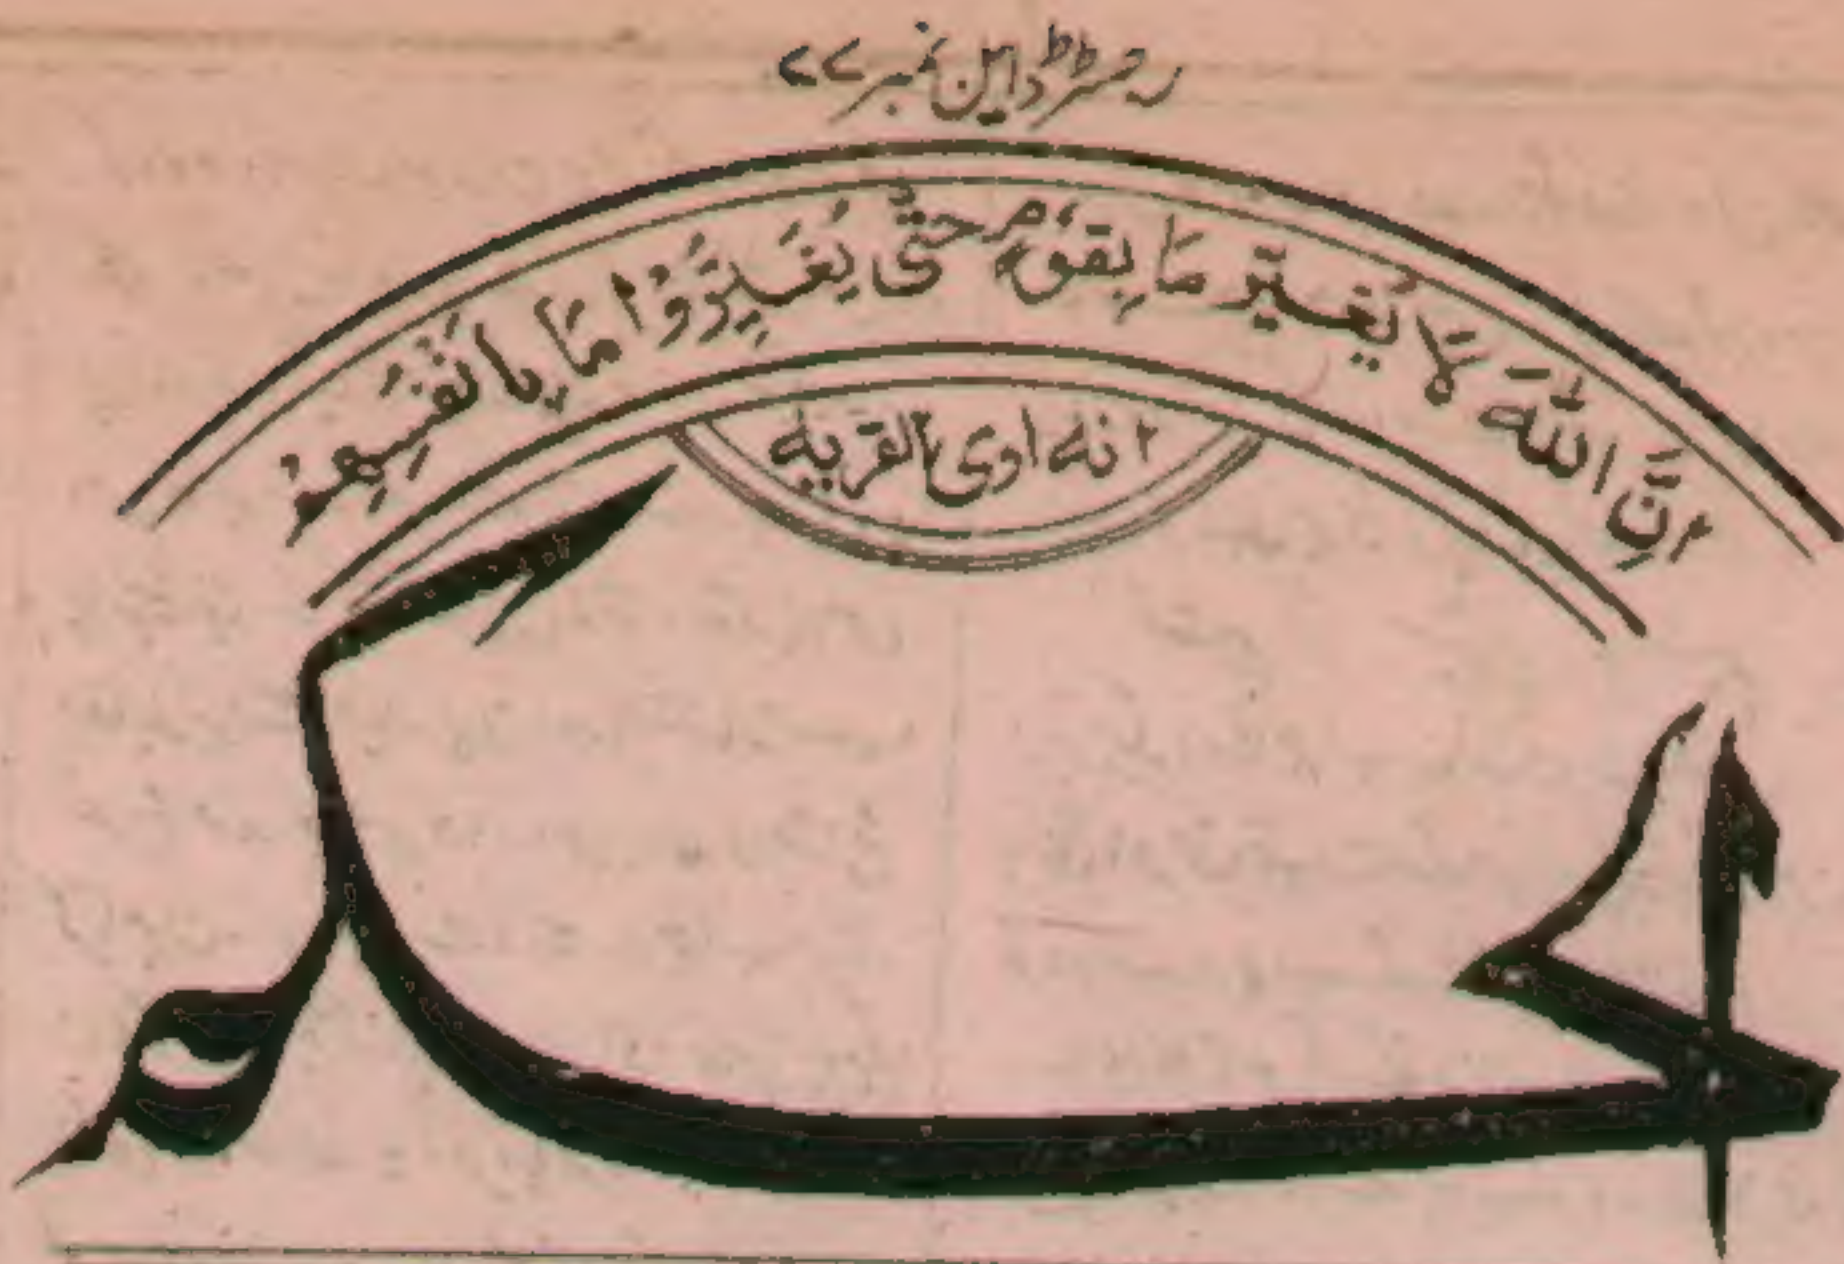 رجسٹرڈ ایل نمبر ۷۷
اِنَّ اللّٰهَ لَا يُغَيِّرُ مَا بِقَوْمٍ حَتّٰى يُغَيِّرُوْا مَا بِاَنْفُسِهِمْ
انه اوى القريه
الحكم